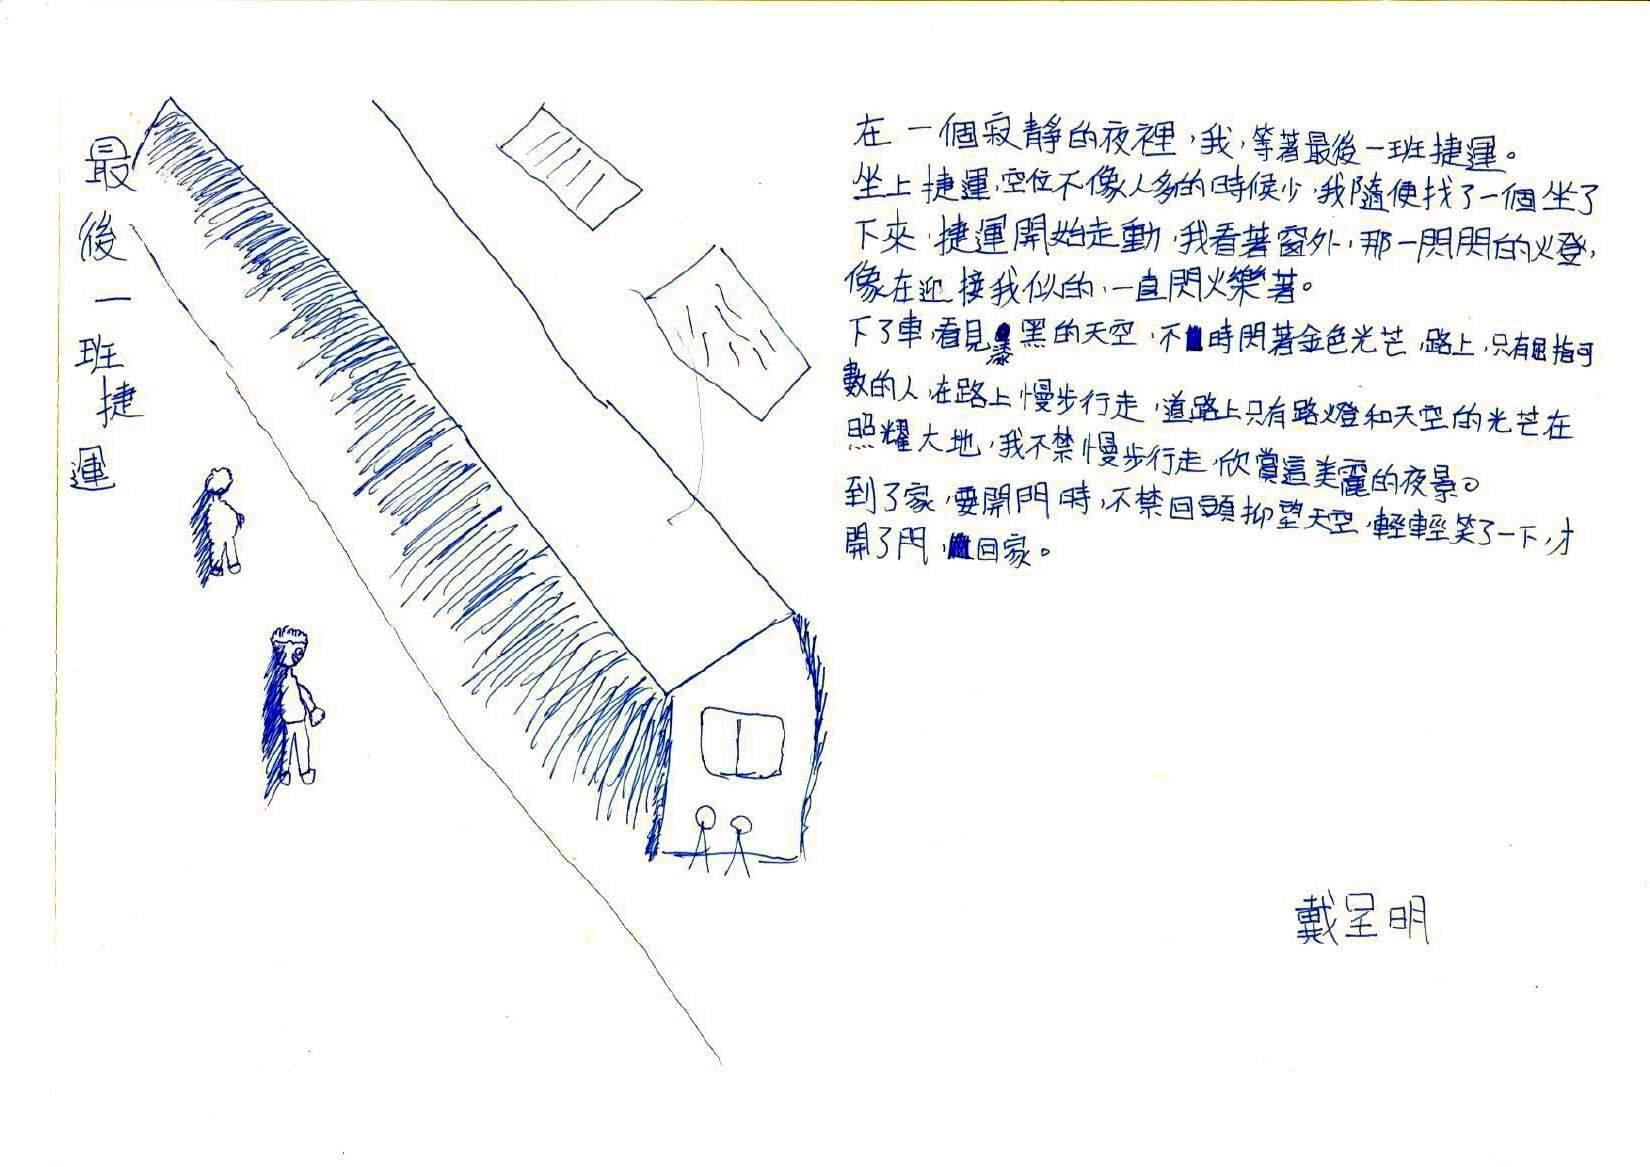 最後一班捷運
在一個寂靜的夜裡，我，等著最後一班捷運。
坐上捷運，空位不像人多的時候少，我隨便找了一個坐了
下來，捷運開始走動，我看著窗外，那一閃閃的燈，
像在迎接我似的，一直閃爍著。
下了車，看見漆黑的天空，不時閃著金色光芒，路上，只有屈指可
數的人，在路上慢步行走，道路上只有路燈和天空的光芒在
照耀大地，我不禁慢步行走，欣賞這美麗的夜景。
到了家，要開門時，不禁回頭抑望天空，輕輕笑了一下，才
開了門，回家。
戴呈明